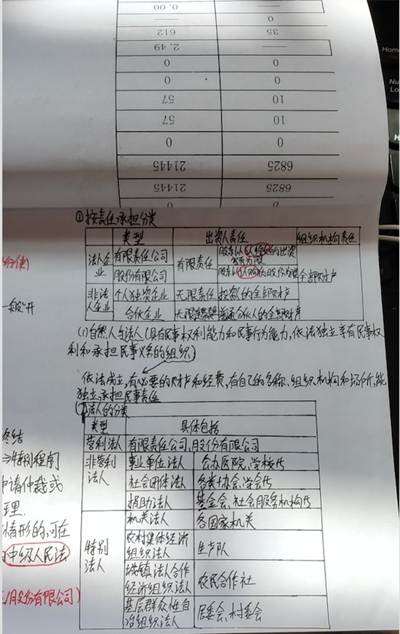 0.00
35 612
2.49
0 0
10 57
10 57
0 0
6825 21445
6825 21445
0 0
①按责任承担分类
类型 出资人责任 组织机构责任
法人企业 有限责任公司 有限责任 股东以认缴的出资额为限
股份有限公司 全部财产
非法人企业 个人独资企业 无限责任 投资人的全部财产
合伙企业 无限连带 普通合伙人的全部财产
(1)自然人与法人(具有民事权利能力和民事行为能力,依法独立享有民事权
利和承担民事义务的组织)
依法成立,有必要的财产和经费,有自己的名称、组织机构和场所,能
独立承担民事责任
法人的分类
类型 具体包括
营利法人 有限责任公司、股份有限公司
非营利法人 事业单位法人 公办医院、学校等
社会团体法人 各类协会、学会等
捐助法人 基金会、社会服务机构等
特别法人 机关法人 各国家机关
农村集体经济组织法人 生产队
城镇法合作经济组织法人 农民合作社
基层群众性自治组织法人 居委会、村委会
终结
⇒特别程序
申请仲裁或
受理
情形的,可在
中级人民法
股份有限公司)